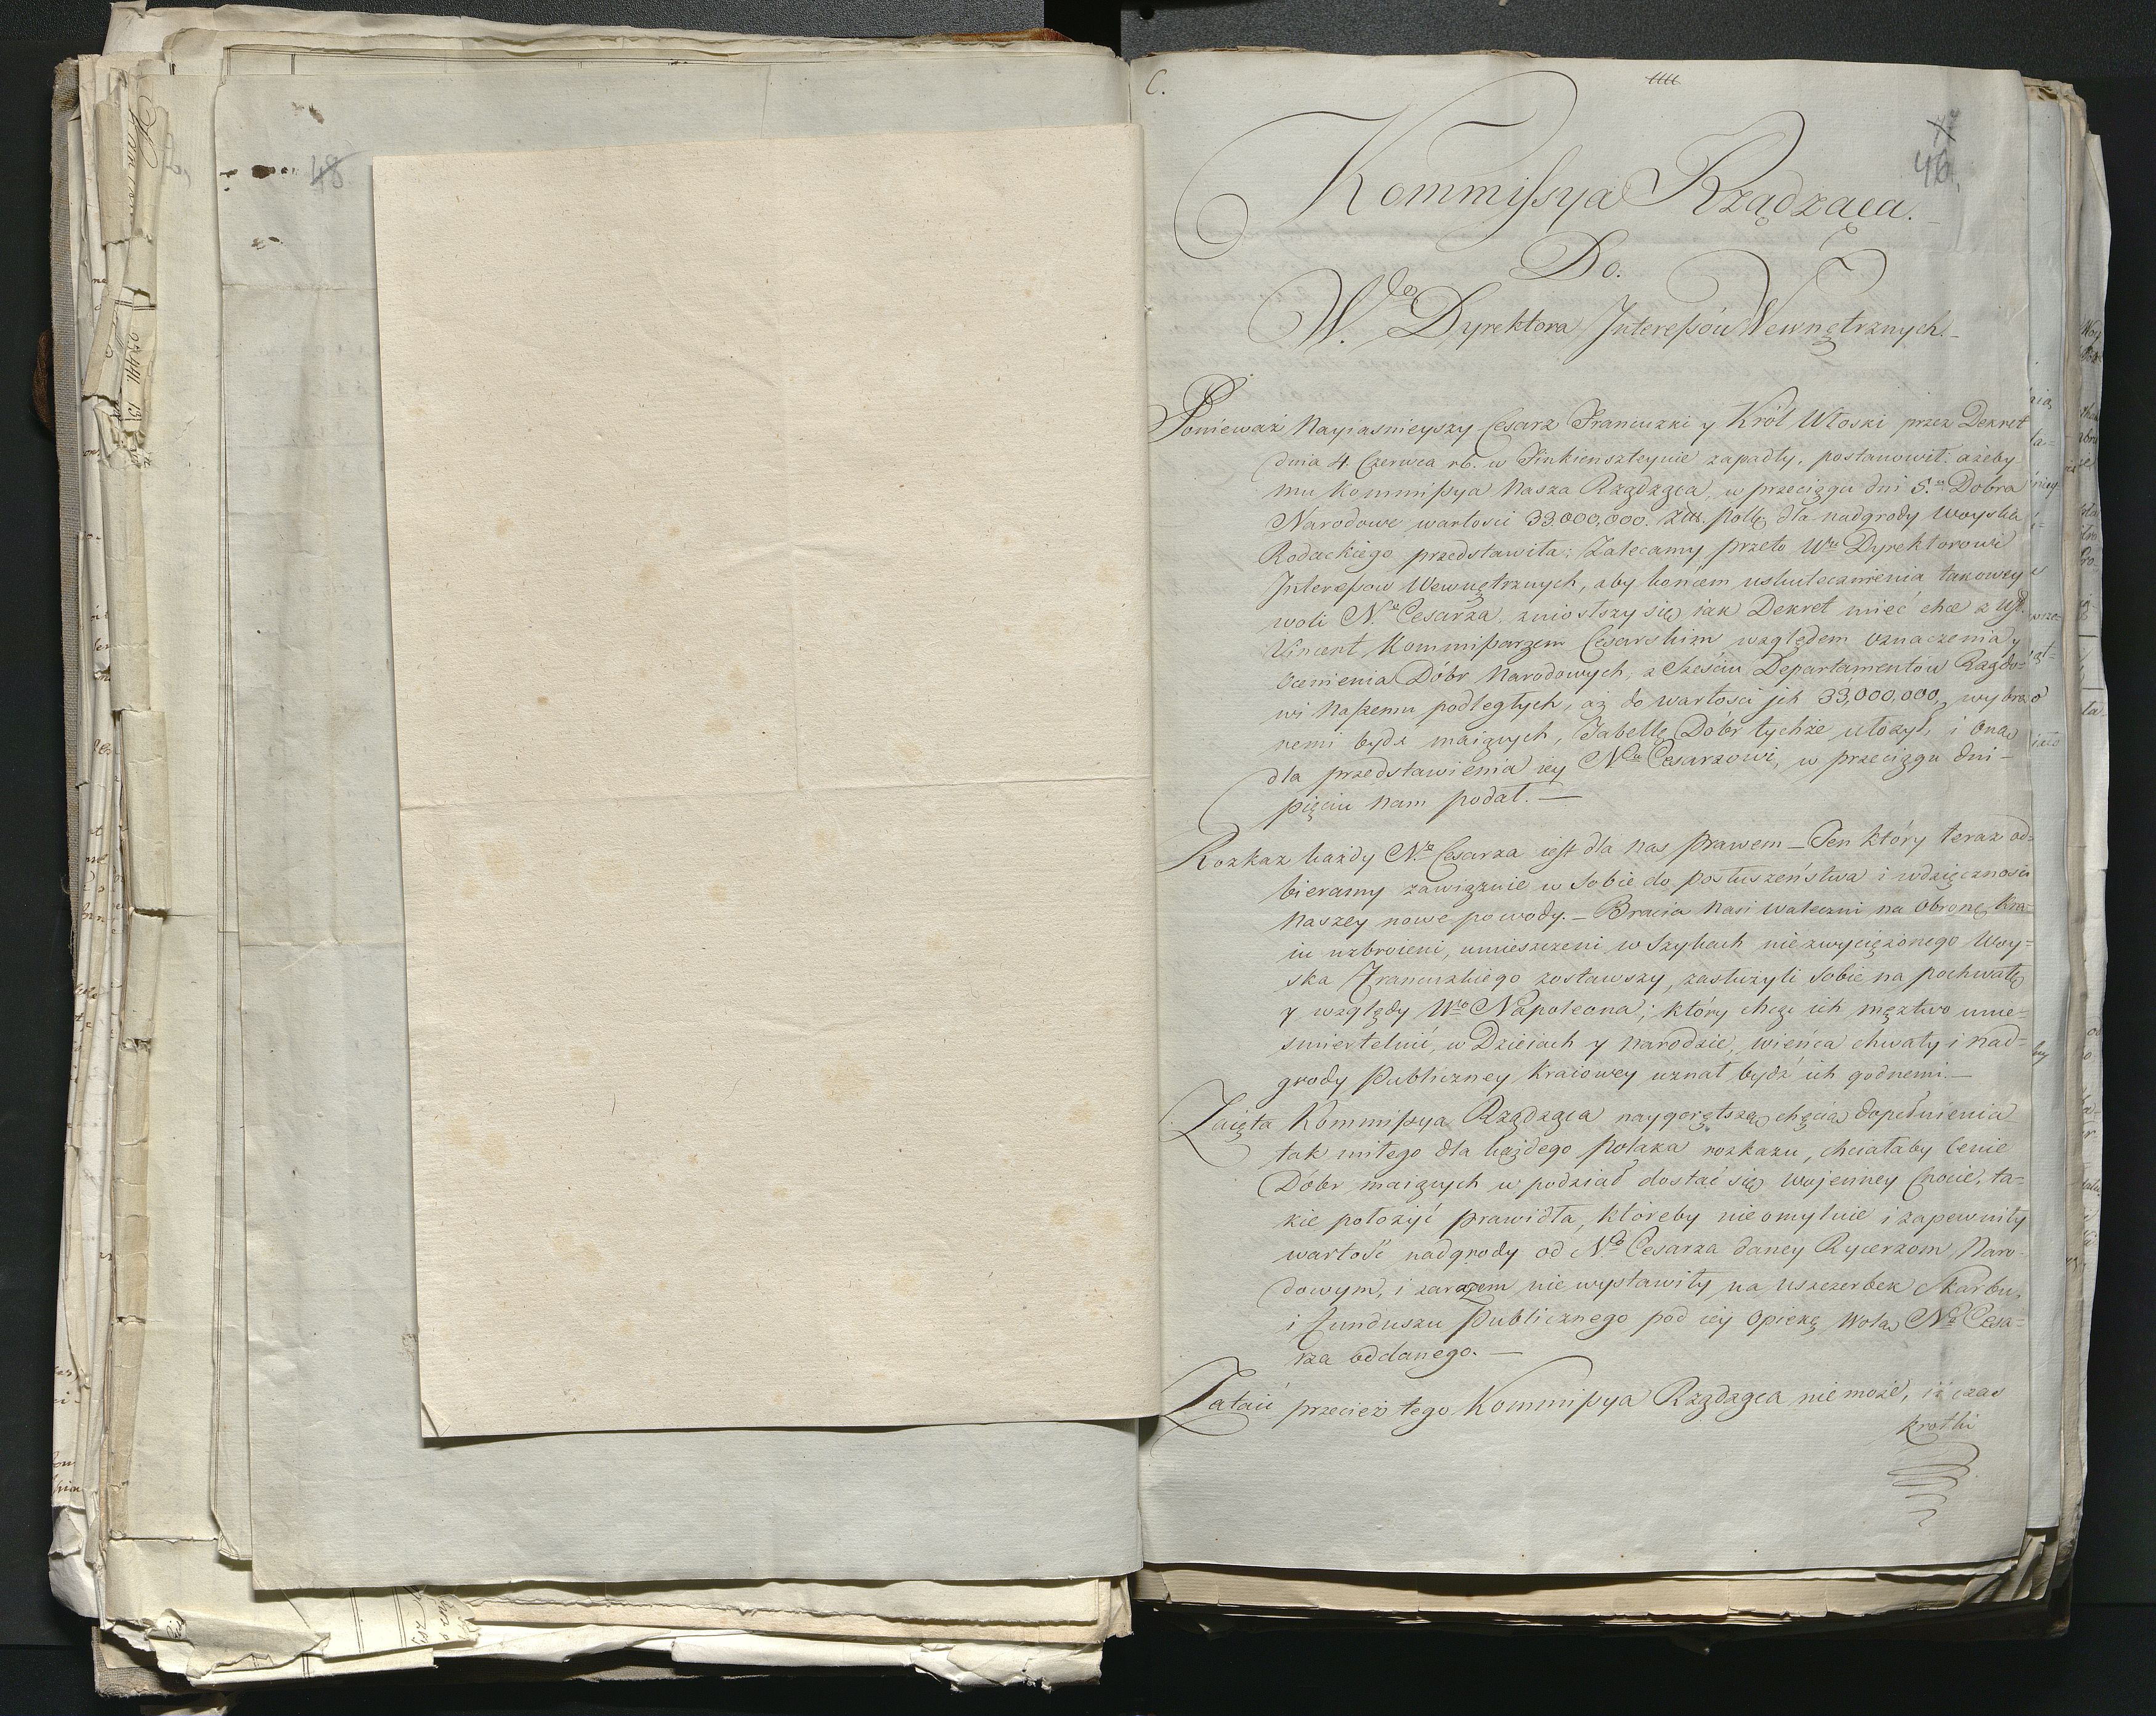 48
C.
46.
Kommissya Rządząca.
Do.
W.go Dyrektora Interessów Wewnętrznych.
Ponieważ Nayiasnieyszy Cesarz Francuzki y Król Włoski przez Dekret
dnia 4. Czerwca rb. w Finkiensteynie zapadły, postanowił: ażeby
mu Kommissya Nasza Rządząca, w przeciągu dni 5.ciu Dobra
Narodowe wartości 33.000,000. Złt. polk. dla nadgrody woyska
Rodackiego przedstawiła; Zalecamy przeto Wu Dyrektorowi
Interessow Wewnętrznych, aby końcem uskutecznienia takowey
woli N.go Cesarza, zniosłszy się iak Dekret mieć chce z
Vincent Kommissarzem Cesarskim względem oznaczenia y
Ocenienia Dóbr Narodowych, z Sześciu Departamentów Rządo-
wi Naszemu podległych, aż do wartości jch 33,000,000, wybra-
nemi bydź maiących, Tabellę Dóbr tychże ułożył, i oną
dla przedstawienia iey N.mu Cesarzowi, w przeciągu dni-
pięciu Nam podał. —
Rozkaz każdy N.go Cesarza iest dla Nas prawem — Ten który teraz od=
bieramy zawiązuie w Sobie do posłuszeństwa i wdzięczności
Naszey nowe powody. — Bracia Nasi waleczni na obronę Kra-
iu uzbroieni, umieszczeni w Szykach niezwyciężonego Woy=
ska Francuzkiego zostawszy, zasłużyli Sobie na pochwałę
y względy Wgo Napoleona; który chcąc ich męztwo unie-
smiertelnić, w Dzieiach y Narodzie, wieńca chwały i nad=
grody Publiczney Kraiowey uznał bydź ich godnemi. —
Zaięta Kommissya Rządząca naygorętszą chęcią dopełnienia
tak miłego dla każdego Polaka rozkazu, chciałaby Cenie
Dóbr maiących w podział dostać się wojenney Cnocie, ta-
kie położyć prawidła, któreby nieomylnie i zapewniły
wartość nadgrody od N.go Cesarza daney Rycerzom Naro-
dowym, i zarazem nie wystawiły na uszczerbek Skarbu,
i funduszu Publicznego pod iey Opiekę Wolą N.go Cesa=
rza oddanego. —
Zataić przecież tego Kommissya Rządząca nie może, iż czas
krotki